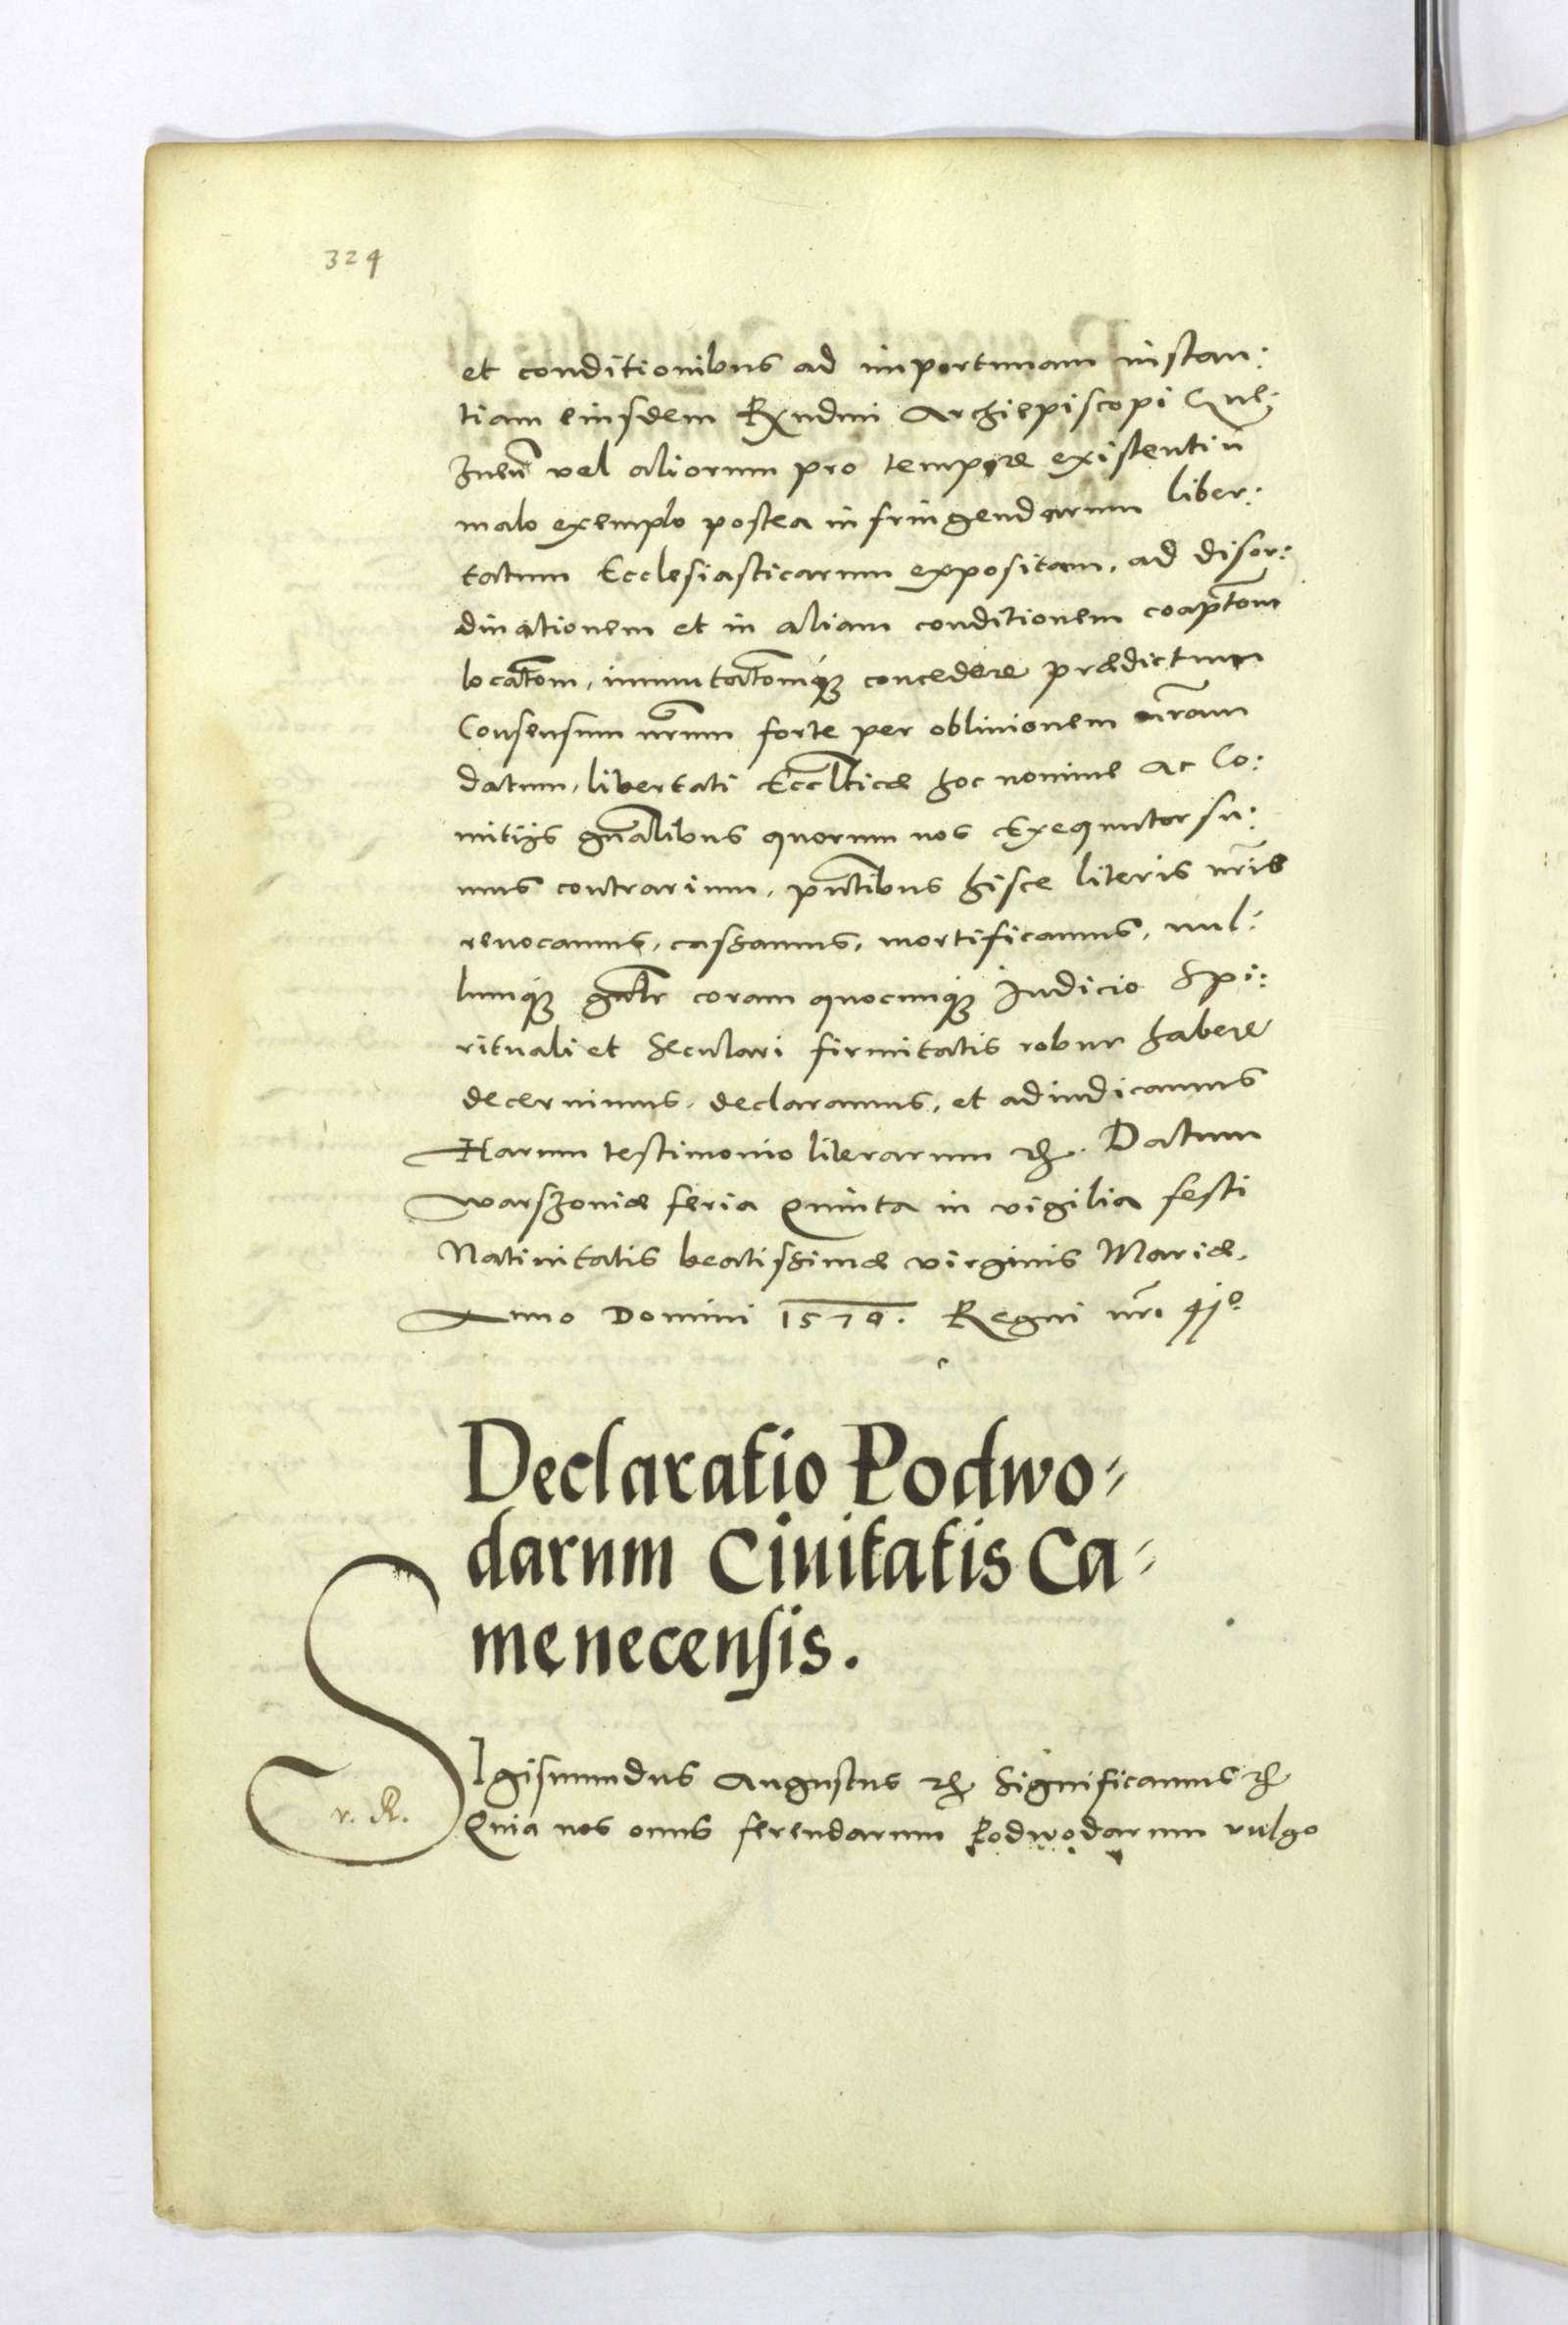 324
et conditionibus ad importunam instan:
tiam eiusdem Rxndmi Archiepiscopi Gne:
znen̄ vel aliorum pro tempore existentiū
malo exemplo postea infringendarum liber:
tatum Ecclesiasticarum expositam, ad disor:
dinationem et in aliam conditionem coaptōm
locatōm, immutatōmq₃ concedere prædictum
Consensum nrūm forte per obliuionem nrām
datum, libertati Eccłticæ hoc nomine ac Co:
mitijs gnālibus quorum nos Exequutor su:
mus contrarium, pntībus hisce literis nrīs
reuocamus, cassamus, mortificamus, nul:
lumq₃ gnłr coram quocunq₃ Judicio Spi:
rituali et Seculari firmitatis robur habere
decernimus, declaramus, et adiudicamus
Harum testimonio literarum etc. Datum
Warszoviæ feria Quinta in vigilia festi
Natiuitatis beatissimæ virginis Mariæ.
Anno Domini 1570. Regni nrī 41º
Declaratio Podwo=
darum Ciuitatis Ca=
menecensis.
SIgismundus Augustus etc. Significamus etc.
v. R. Quia nos onus ferendarum Podwodarum vulgo